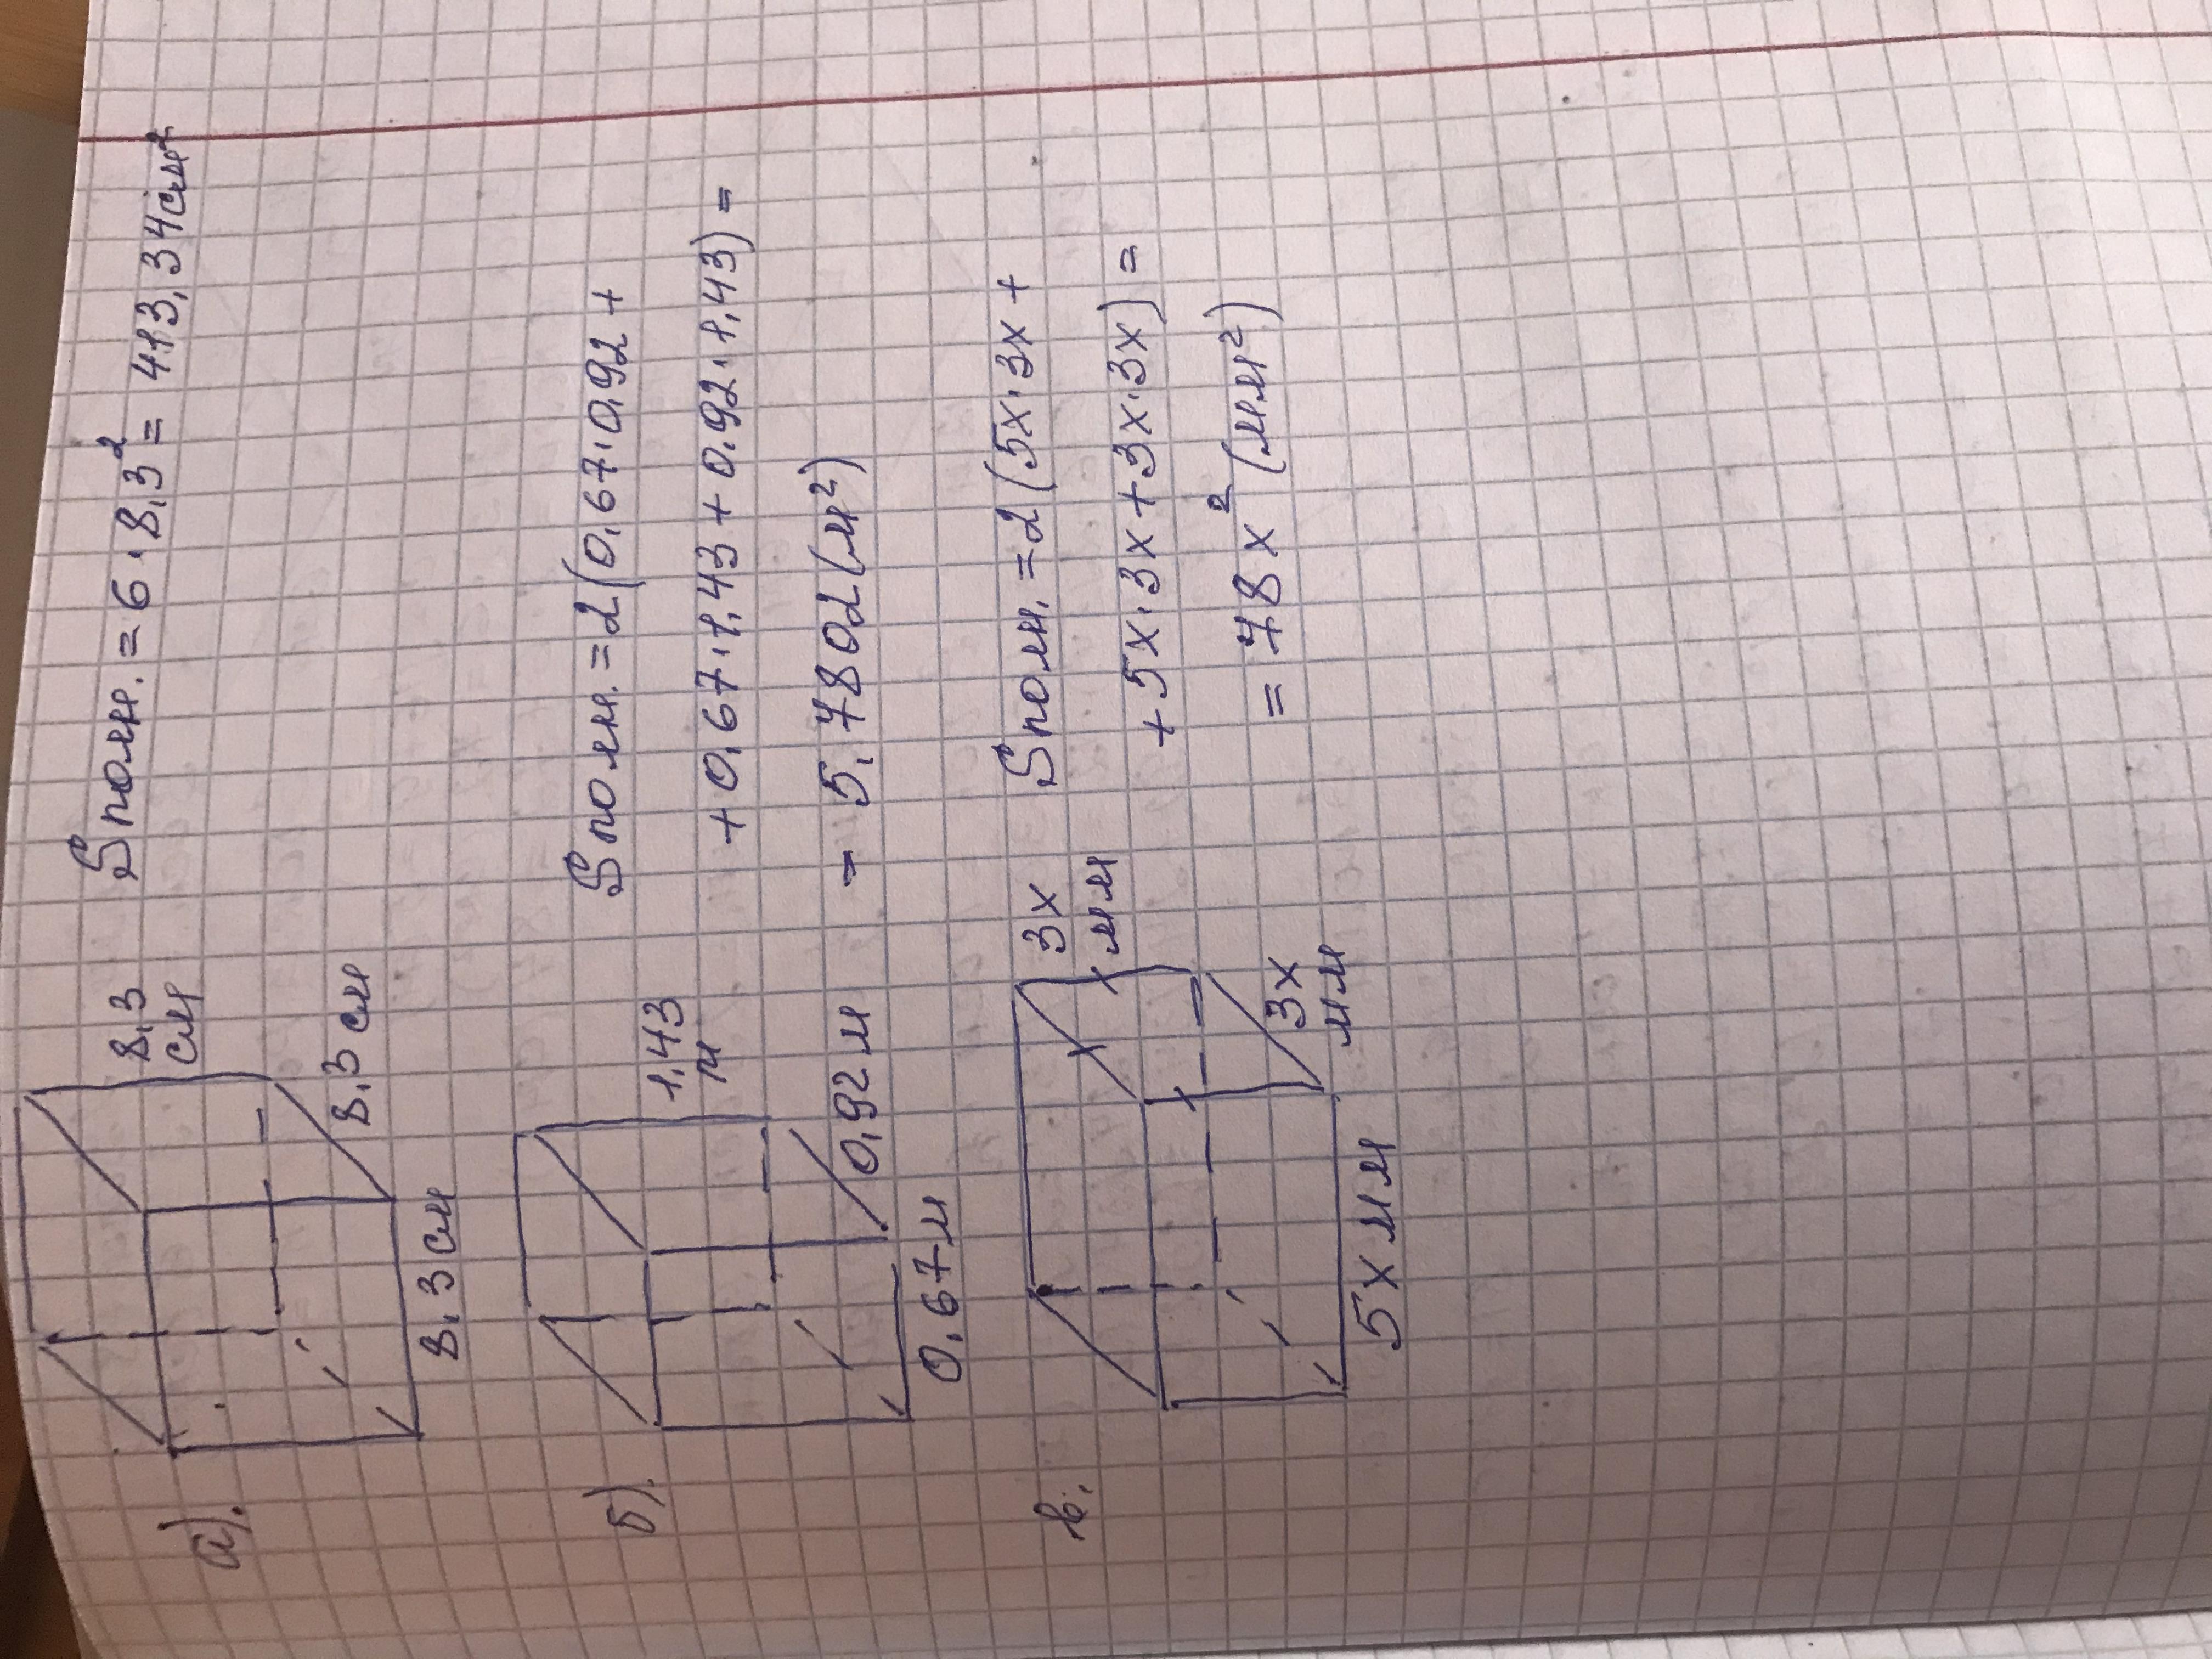 а).
8,3
см
8,3 см
8,3 см
Sполн. = 6 · 8,3² = 413,34 см²
б).
1,43
м
0,92 м
0,67 м
Sполн. = 2(0,67·0,92 +
+ 0,67·1,43 + 0,92·1,43) =
= 5,7802 (м²)
в.
3x
мм
3x
мм
5x мм
Sполн. = 2(5x·3x +
+ 5x·3x + 3x·3x) =
= 78x² (мм²)